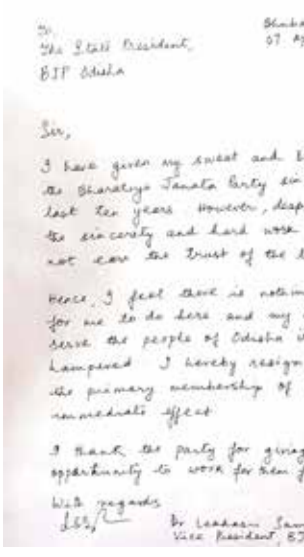 To,
The State President,
BJP Odisha
Bhuba
07 Ap
Sir,
I have given my sweat and b
the Bharatiya Janata Party sin
last ten years. However, desp
the sincerity and hard work
not earn the trust of the l
Hence, I feel there is nothin
for me to do here and my
serve the people of Odisha
hampered I hereby resign
the primary membership of
immediate effect
I thank the party for giving
opportunity to work for them f
With regards
Dr Leekhasri Sam
Vice President, BJ